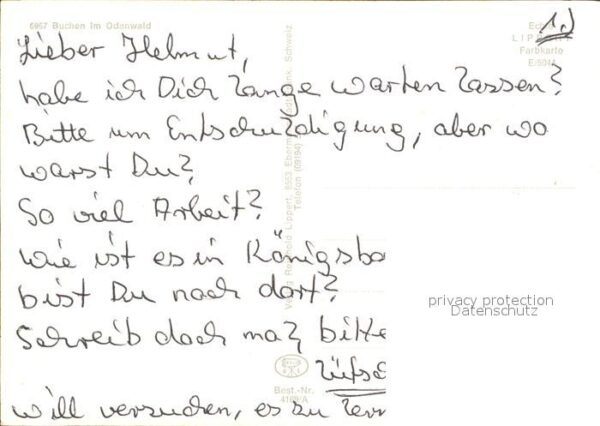 6967 Buchen im Odenwald
1.)
Echte
LIPP
Farbkarte
E/5044
Lieber Helmut,
habe ich Dich lange warten lassen?
Bitte um Entschuldigung, aber wo
warst Du?
So viel Arbeit?
wie ist es in Königsbo
bist Du noch dort?
Schreib doch mal, bitte
will versuchen, es zu lern
Verlag Reinhold Lippert, 8553 Ebermannstadt/Fränk. Schweiz
Telefon (09194)
Best.-Nr.
privacy protection
Datenschutz